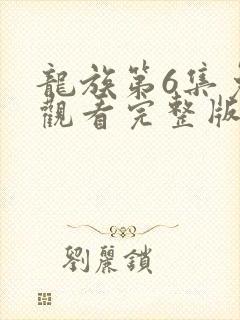 龍族第6集
觀看完整版
劉麗鎖